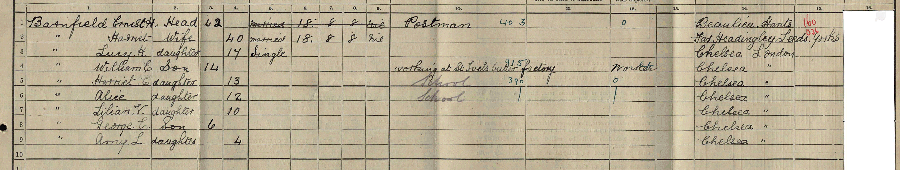 1 Barnfield Ernest H. Head 42 married 18 8 8 Postman 403 0 Beaulieu Hants 160
2 " Harriet Wife 40 married 18 8 8 Nil Far Headingley Leeds Yorks
3 " Lucy H. daughter 17 Single Chelsea London
4 " William E Son 14 working at factory Worker Chelsea "
5 " Harriet E daughter 13 School 390 0 Chelsea "
6 " Alice daughter 12 School Chelsea "
7 " Lilian K. daughter 10 Chelsea "
8 " George E. Son 6 Chelsea "
9 " Amy L daughter 4 Chelsea "
10